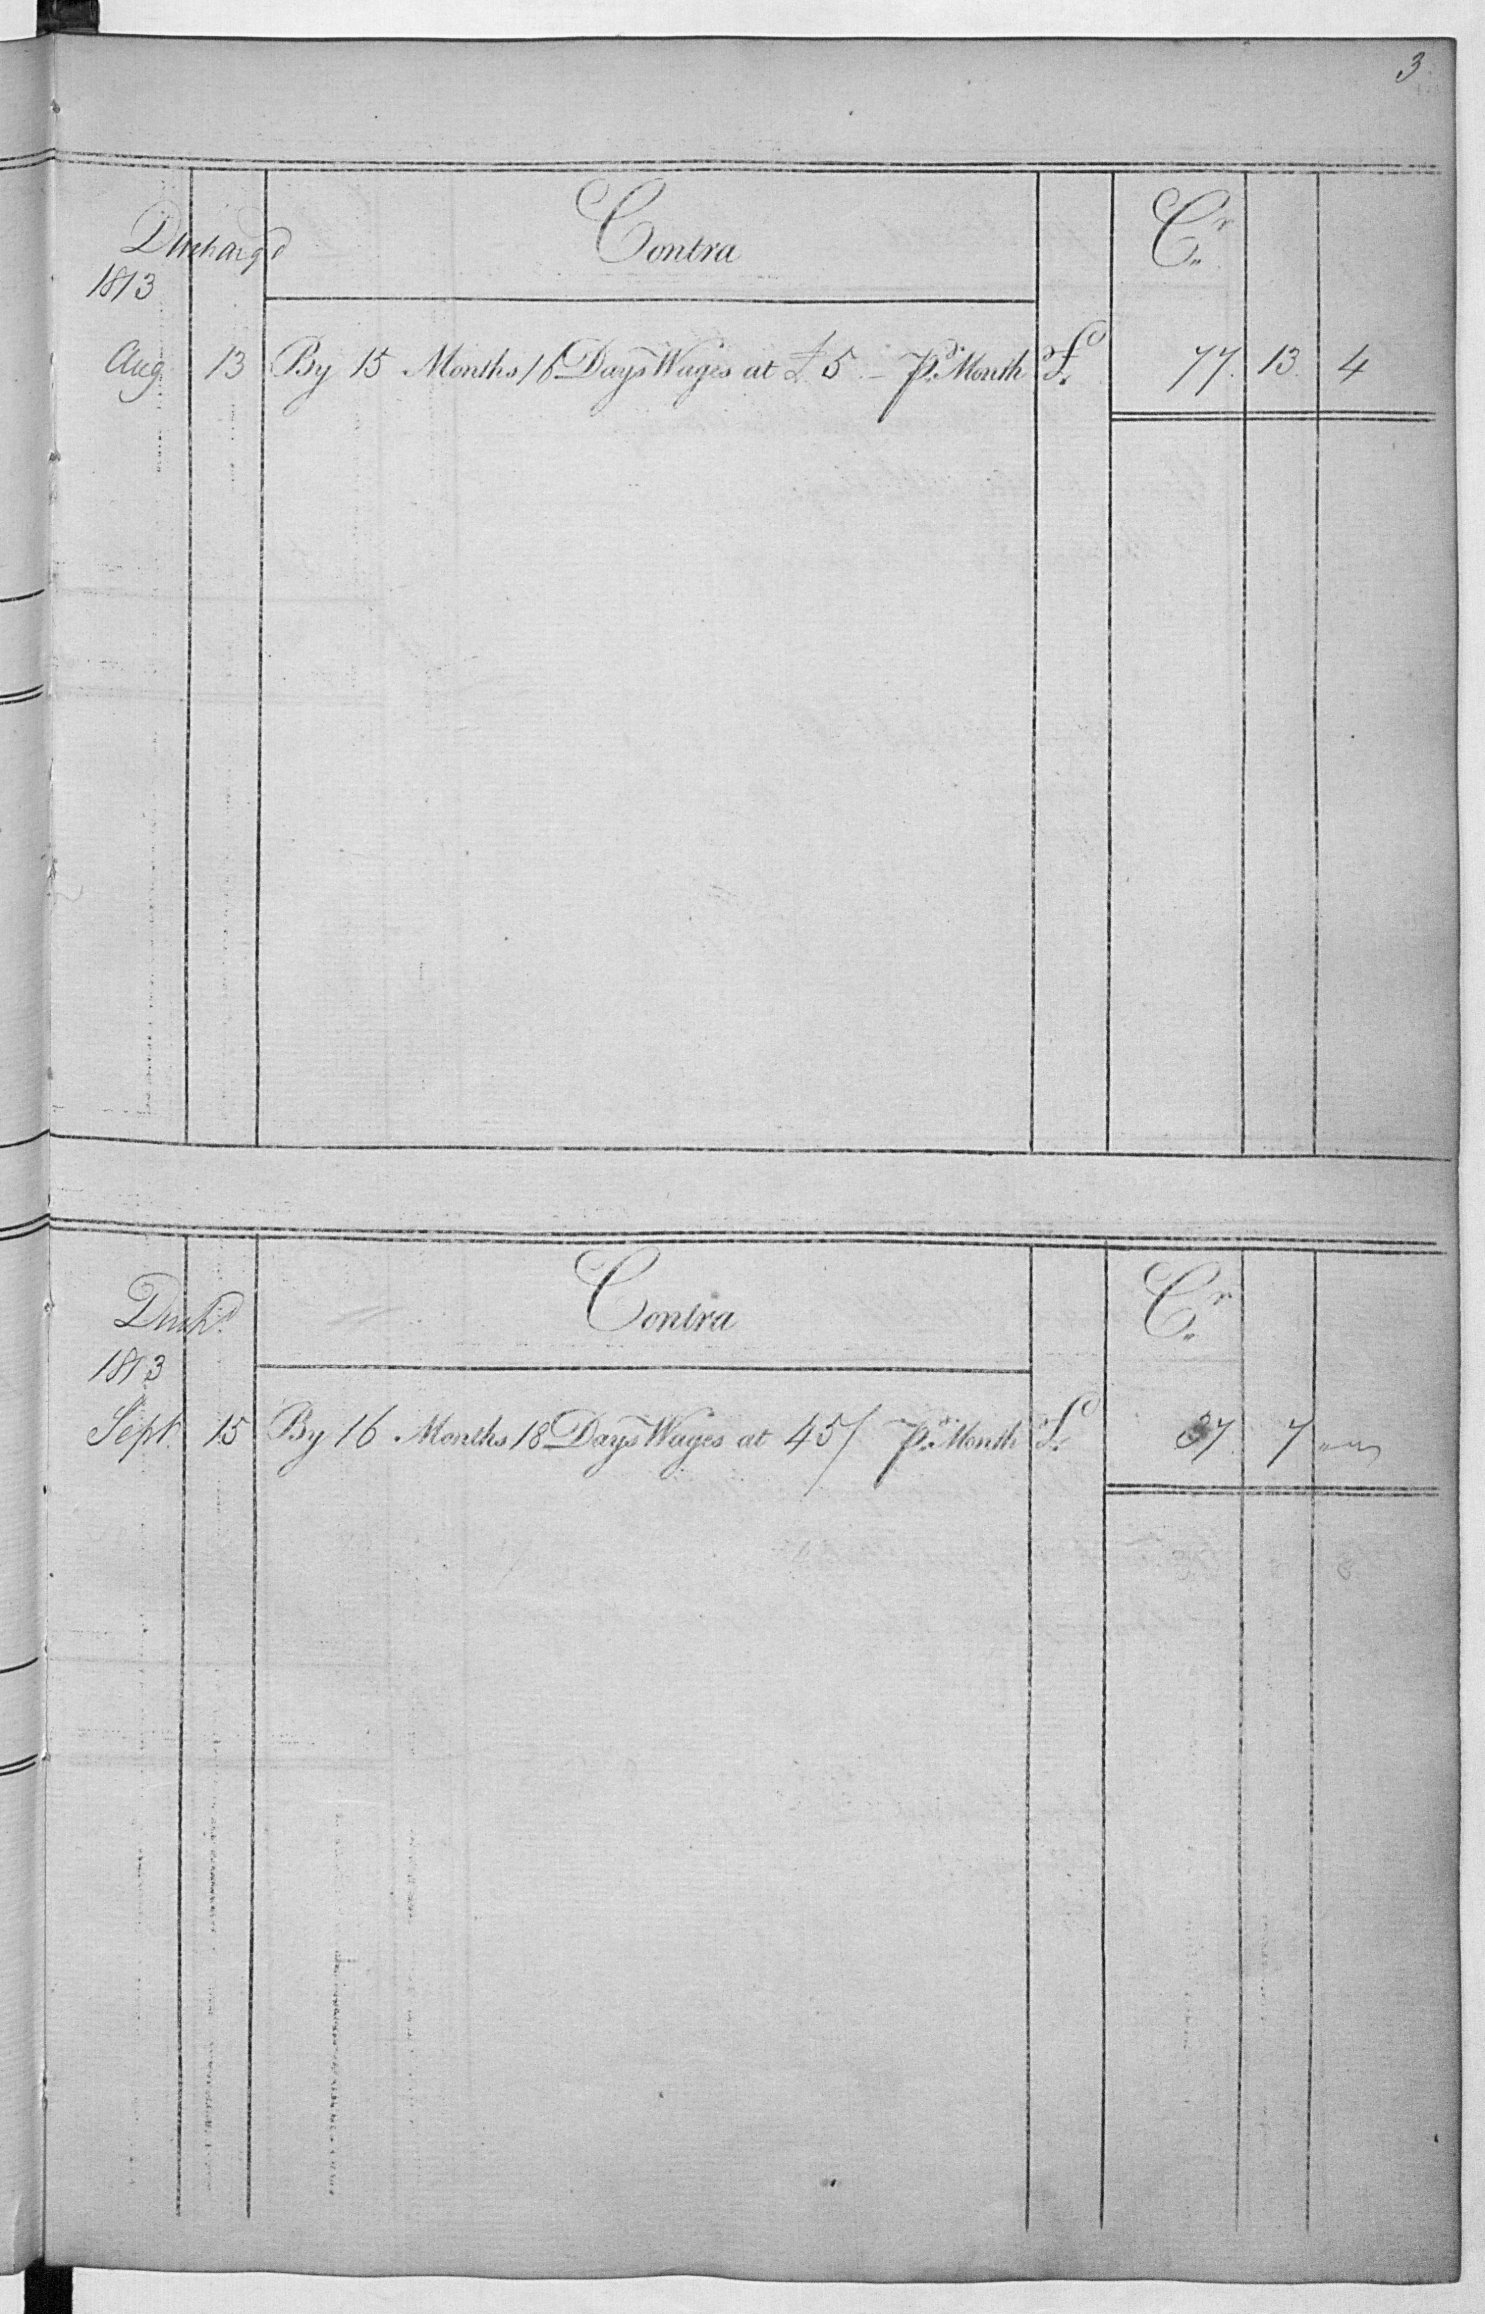 3
Contra Cr
Discharg'd
1813
Aug 13 By 15 Months 16 Days Wages at £ 5 - Pr. Month £ 77 13 4
Contra Cr
Disch'd
1813
Sept. 15 By 16 Months 18 Days Wages at 45/ Pr. Month £ 37 7 "